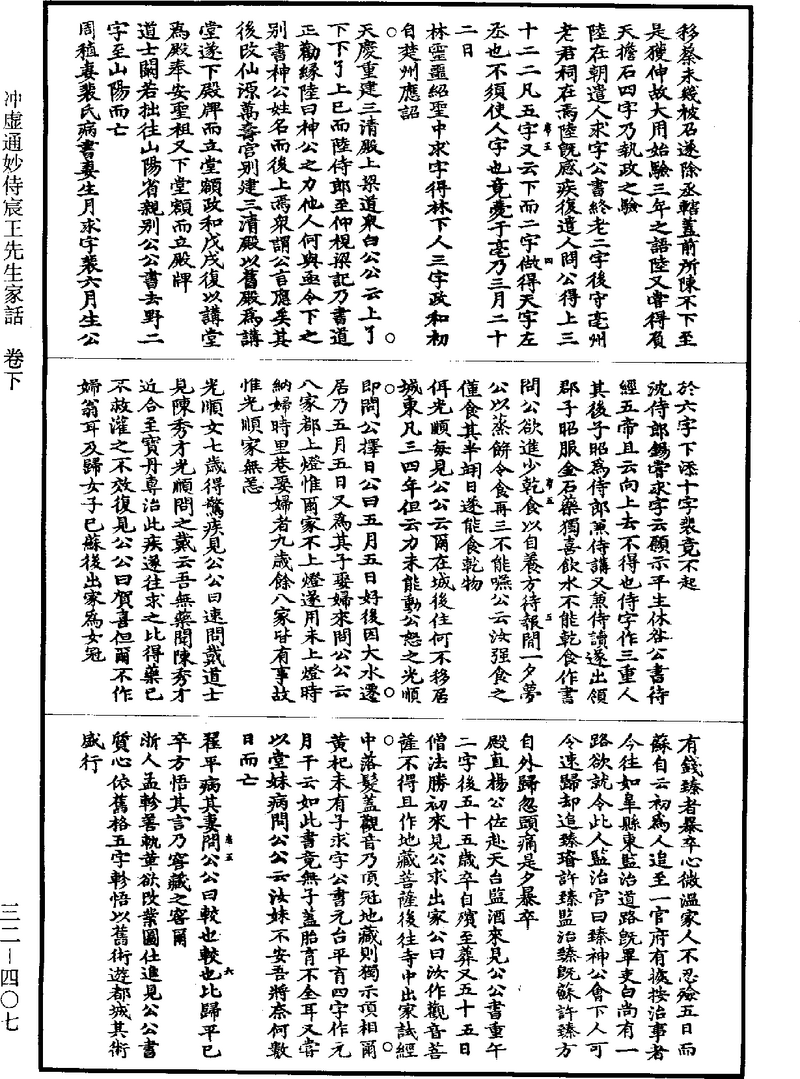 移蔡未幾被召遂除丞轄蓋前所陳不下至
是獲伸故大用始驗三年之語陸又嘗得負
天擔石四字乃執政之驗
陸在朝遣人求字公書終老二字後守亳州
老君祠在焉陸既感疾復遣人問公得上三
十二二凡五字又云下而二字做得天字左
丞也不須使人字也竟薨于亳乃三月二十
二日
林靈噩紹聖中求字得林下人三字政和初
自楚州應詔
天慶重建三清殿上梁道衆白公公云上了
下下了上已而陸侍郎至仰視梁記乃書道
正勸緣陸曰神公之力他人何與亟令下之
别書神公姓名而後上焉衆謂公言應矣其
後改仙源萬壽宫别建三清殿以舊殿爲講
堂遂下殿牌而立堂額政和戊戌復以講堂
爲殿奉安聖祖又下堂額而立殿牌
道士闕若拙往山陽省親别公公書去野二
字至山陽而亡
周稙妻裴氏病書妻生月求字裴六月生公
於六字下添十字裴竟不起
沈侍郎錫嘗求字云願示平生休咎公書待
經五帝且云向上去不得也侍字作三重人
其後子昭爲侍郎兼侍講又兼侍讀遂出領
郡子昭服金石藥獨喜飲水不能乾食作書
問公欲進少乾食以自養方待報間一夕夢
公以蒸餅令食再三不能嚥公云汝强食之
僅食其半翊日遂能食乾物
侔光順每見公公云爾在城後住何不移居
城東凡三四年但云力未能動公怒之光順
即問公擇日公曰五月五日好後因大水遷
居乃五月五日又爲其子娶婦來問公公云
八家都上燈惟爾家不上燈遂用未上燈時
納婦時里巷娶婦者九歲餘八家皆有事故
惟光順家無恙
光順女七歲得驚疾見公公曰速問戴道士
見陳秀才光順問之戴云吾無藥聞陳秀才
近合至寶丹專治此疾遂往求之比得藥已
不救灌之不效復見公公曰賀喜但爾不作
婦翁耳及歸女子已蘇後出家爲女冠
有錢臻者暴卒心微温家人不忍殮五日而
蘇自云初爲人追至一官府有據按治事者
令往如阜縣東監治道路既畢吏白尚有一
路欲就令此人監治官曰臻神公會下人可
令速歸却追臻璿許臻監治臻既蘇許臻方
自外歸忽頭痛是夕暴卒
殿直楊公佐赴天台監酒來見公公書重午
二字後五十五歲卒自殯至葬又五十五日
僧法勝初來見公求出家公曰汝作觀音菩
薩不得且作地藏菩薩後往寺中出家試經
中落髮蓋觀音乃頂冠地藏則獨示頂相爾
黄杞未有子求字公書元台平育四字作元
月干云如此書竟無子蓋胎育不全耳又嘗
以堂妹病問公公云汝妹不安吾將柰何數
日而亡
翟平病其妻問公公曰較也較也比歸平已
卒方悟其言乃窖藏之窖爾
浙人孟軫善軌革欲改業圖仕進見公公書
質心依舊格五字軫悟以舊術遊都城其術
盛行
冲虛通妙侍宸王先生家話　卷下
三二—四〇七